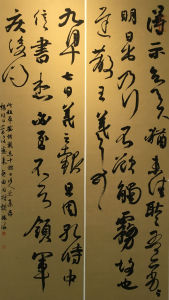 得示知足下猶未佳耿耿吾亦劣劣
明日出乃行不欲觸霧故也
遲散王羲之頓首
九月十七日羲之報且因孔侍中
信書想必至不知領軍
疾後問